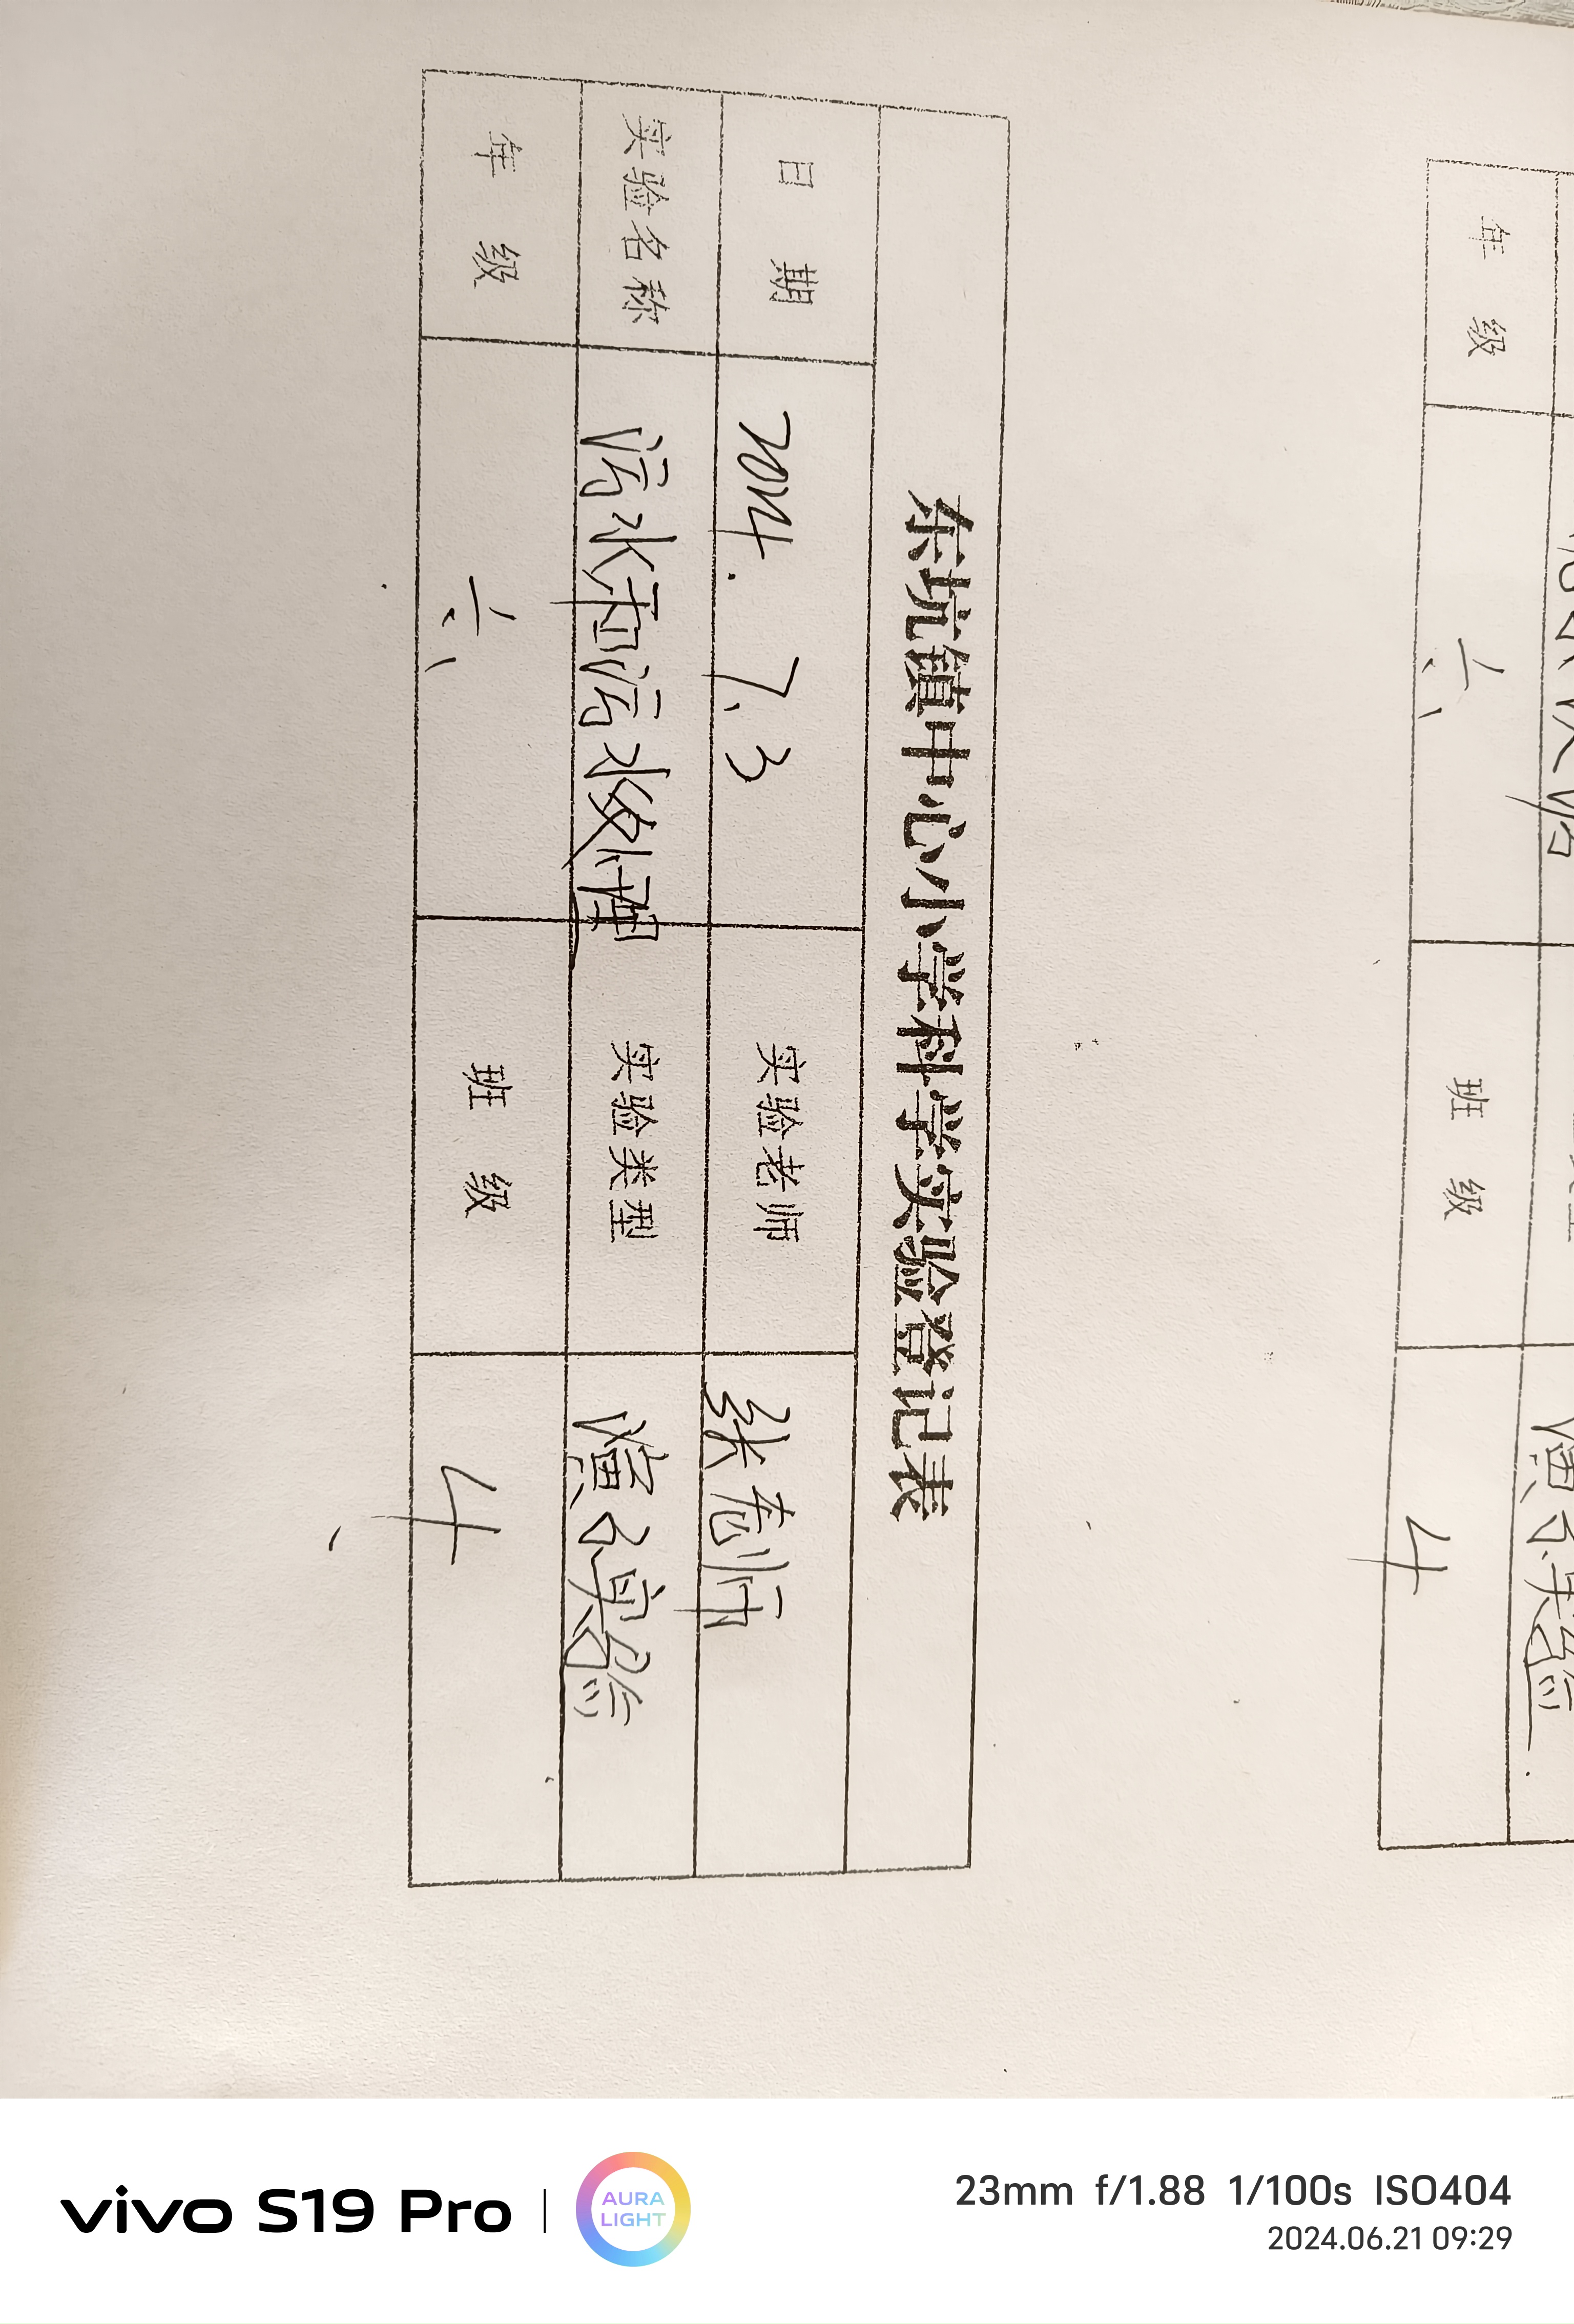 东坑镇中心小学科学实验登记表
日 期 2014. 7. 3 实验老师 张老师
实验名称 污水和污水处理 实验类型 演示实验
年 级 六 班 级 4
年 级 六 班 级 4
演示实验
vivo S19 Pro
AURA LIGHT
23mm f/1.88 1/100s ISO404
2024.06.21 09:29